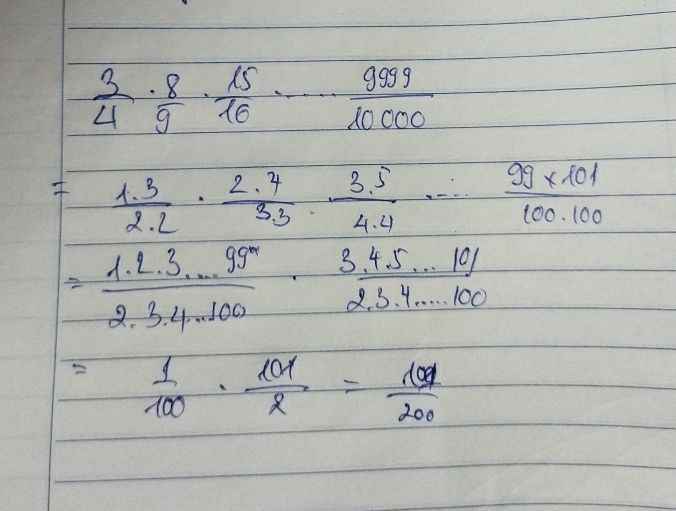 3/4 . 8/9 . 15/16 ..... 9999/10.000
= 1.3/2.2 . 2.4/3.3 . 3.5/4.4 ..... 99 x 101/100.100
= 1.2.3....99/2.3.4...100 . 3.4.5...101/2.3.4.....100
= 1/100 . 101/2 = 101/200